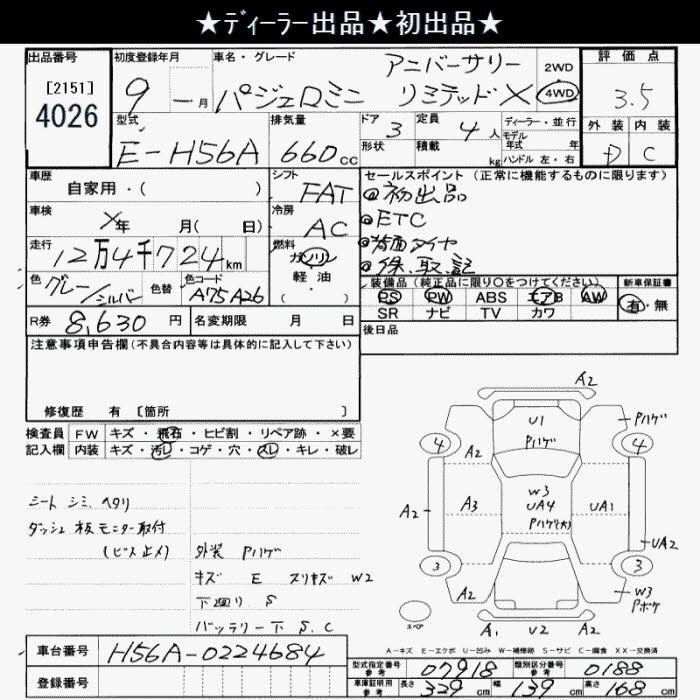 ★ディーラー出品★初出品★
出品番号
[2151]
4026
初度登録年月
9 ー 月
車名・グレード
パジェロミニ
アニバーサリー
リミテッド X
2WD
4WD
評価点
3.5
外装 内装
D C
型式
E-H56A
排気量
660 cc
ドア 3
形状
定員 4 人
積載 kg
ディーラー・並行
モデル
年式 年
ハンドル 左・右
車歴
自家用・( )
シフト
FAT
セールスポイント (正常に機能するものに限ります)
◎初出品
◎ETC
◎背面タイヤ
◎保、取、記
車検
X年 月( 日)
冷房
AC
走行
12万4千724km
燃料
ガソリン
軽・油
( ・ )
色 グレー/シルバー
色替
色コード
A75 A26
装備品 (純正品に限り○をつけてください)
PS PW ABS エアB AW
SR ナビ TV カワ
新車保証書
有・無
R券 8,630 円
名変期限 月 日
後日品
注意事項申告欄 (不具合内容等は具体的に記入して下さい)
修復歴 有 [箇所 ]
検査員 FW キズ・飛石・ヒビ割・リペア跡・×要
記入欄 内装 キズ・汚レ・コゲ・穴・スレ・キレ・破レ
シート シミ ヘタリ
ダッシュ板モニター取付
(ビス止メ)
外装 Pハゲ
キズ E スリキズ W2
下廻り S
バッテリー下 S、C
A2
U1
Pハゲ
Pハゲ
4
4
A2
A2
A3
W3
UA4
Pハゲ(大)
UA1
UA2
3
3
A2
W3
Pボケ
スペア
A1 U2 A2
A-キズ E-エクボ U-凹み W-補修跡 S-サビ C-腐食 XX-交換済
車台番号 H56A-0224684
登録番号
型式指定番号
参考
07918
類別区分番号
参考
0188
車庫証明用
参考
長さ 329 cm
幅 139 cm
高さ 168 cm